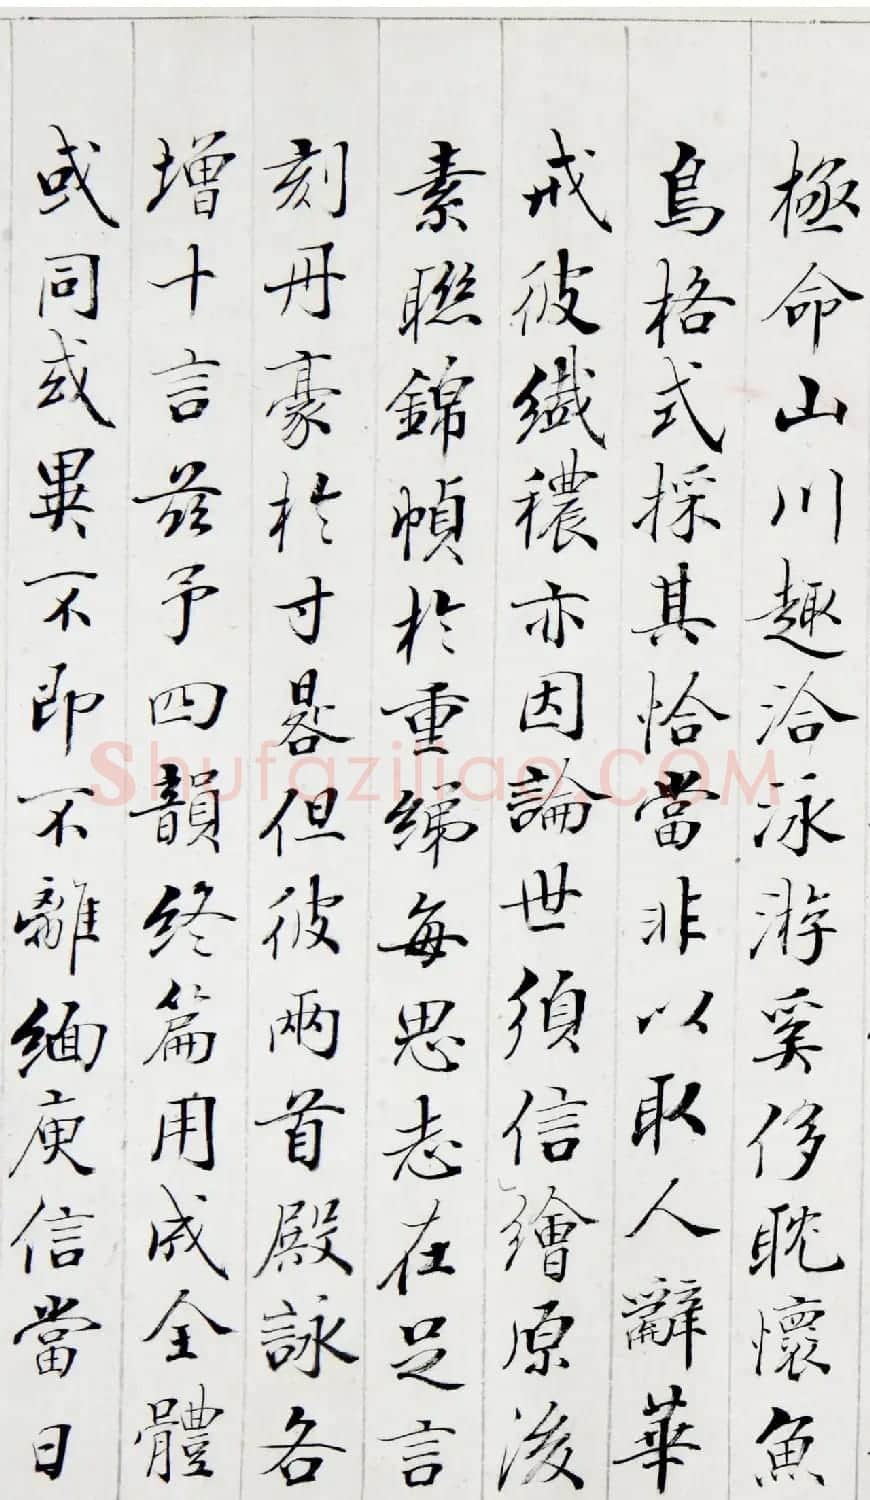 極命山川趣洽泳游奚侈耽懷魚
鳥格式採其恰當非以取人辭華
戒彼纖穠亦因論世須信繪原後
素聯錦幀於重綈每思志在足言
刻丹豪於寸晷但彼兩首殿詠各
增十言茲予四韻終篇用成全體
或同或異不即不離緬庾信當日
Shufaziliao.COM